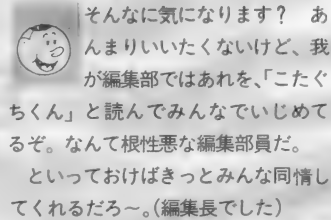 そんなに気になります？　あ
んまりいいたくないけど、我
が編集部ではあれを、「こたぐ
ちくん」と読んでみんなでいじめて
るぞ。なんて根性悪な編集部員だ。
　といっておけばきっとみんな同情し
てくれるだろ〜。（編集長でした）